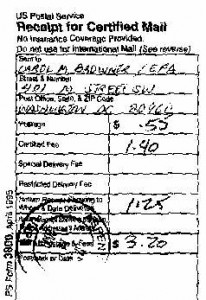 US Postal Service
Receipt for Certified Mail
No Insurance Coverage Provided.
Do not use for International Mail (See reverse)
Sent to
CAROL M. BROWNER / EPA
Street & Number
401 M STREET SW
Post Office, State, & ZIP Code
WASHINGTON DC 20460
Postage $ .55
Certified Fee 1.40
Special Delivery Fee
Restricted Delivery Fee
Return Receipt Showing to
Whom & Date Delivered 1.25
$ 3.20
Postmark or Date
PS Form 3800, April 1995